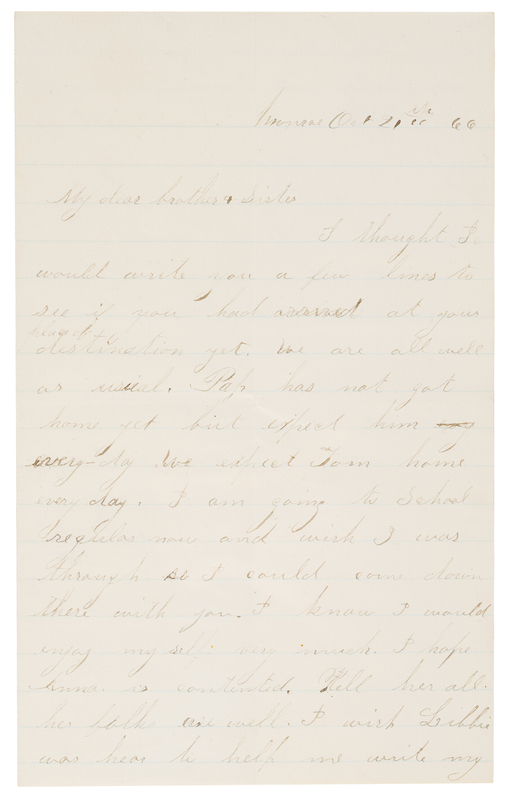 Monroe Oct 21st 66
My dear brother & Sister
I thought I
would write you a few lines to
see if you had arrived at your
destination yet. We are all well
as usual. Pap has not got
home yet but expect him
every-day We expect Tom home
every day. I am going to School
regular now and wish I was
through so I could come down
there with you. I know I would
enjoy my self very much. I hope
Anna is contented. Tell her all
her folks are well. I wish Libbie
was hear to help me write my